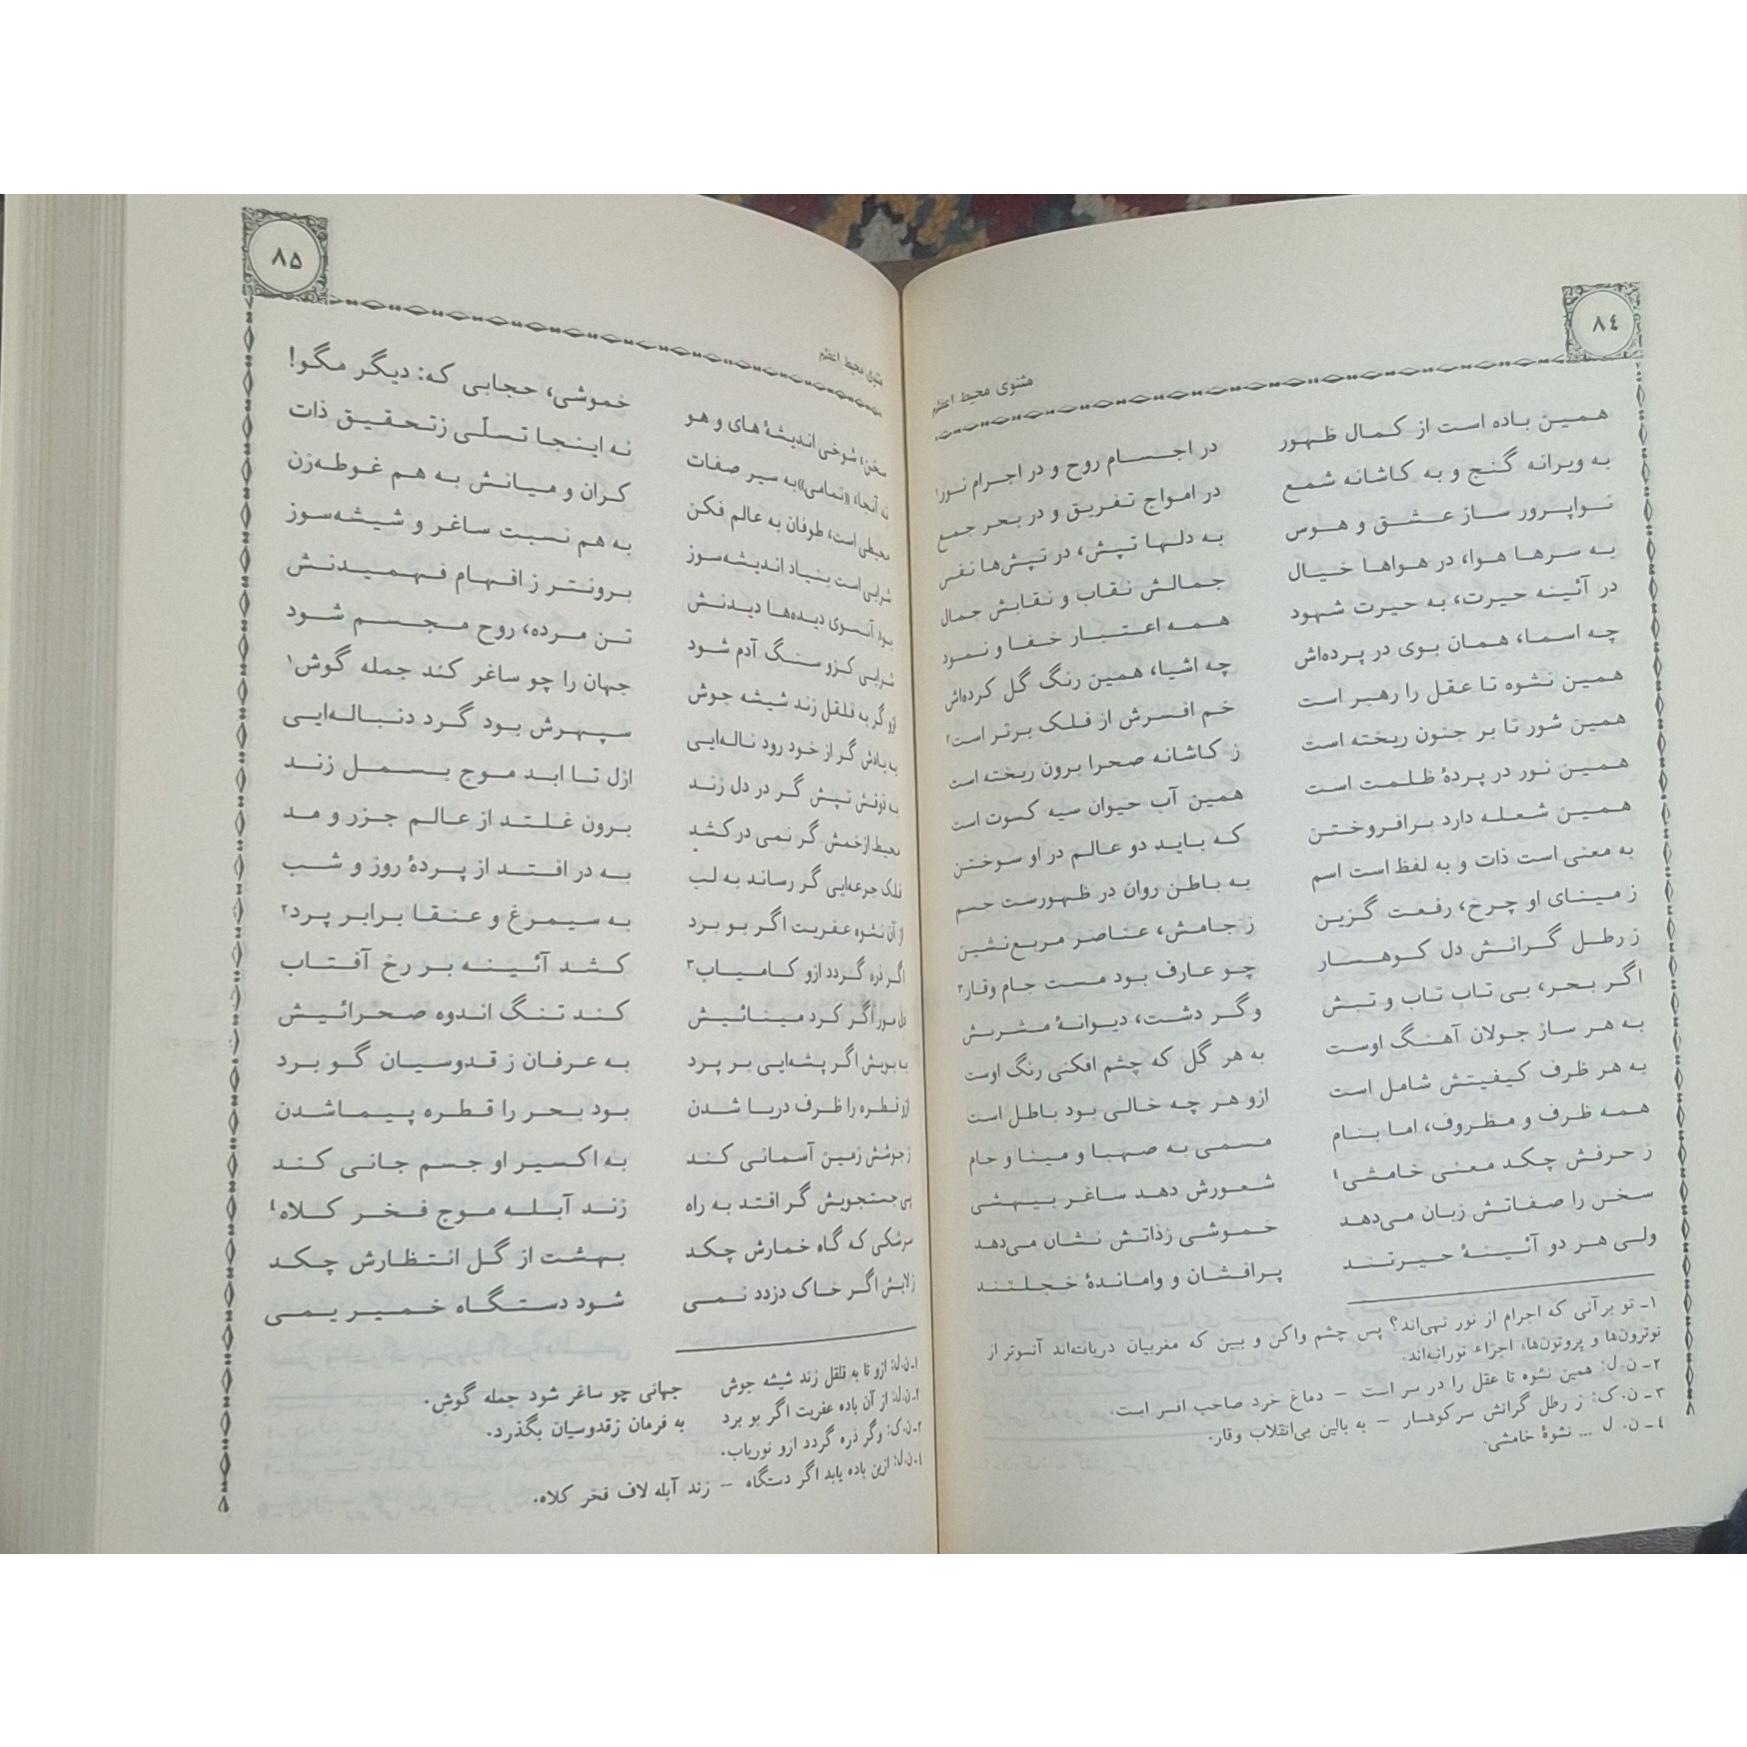 ۸۴
مثنوی محیط اعظم
همین باده است از کمال ظهور در اجسام روح و در اجرام نور۱
به ویرانه گنج و به کاشانه شمع در امواج تفریق و در بحر جمع
نواپرور ساز عشق و هوس به دلها تپش، در تپش‌ها نفس
به سرها هوا، در هواها خیال جمالش نقاب و نقابش جمال
در آئینه حیرت، به حیرت شهود همه اعتبار خفا و نمود
چه اسما، همان بوی در پرده‌اش چه اشیا، همین رنگ گل کرده‌اش
همین نشوه تا عقل را رهبر است خم افسرش از فلک برتر است۲
همین شور تا بر جنون ریخته است ز کاشانه صحرا برون ریخته است
همین نور در پردهٔ ظلمت است همین آب حیوان سیه کسوت است
همین شعله دارد برافروختن که باید دو عالم در او سوختن
به معنی است ذات و به لفظ است اسم به باطن روان در ظهورست جسم
ز مینای او چرخ، رفعت گزین ز جامش، عناصر مربع‌نشین
ز رطل گرانش دل کوهسار چو عارف بود مست جام وقار۳
اگر بحر، بی تاب تاب و تبش وگر دشت، دیوانهٔ مشربش
به هر ساز جولان آهنگ اوست به هر گل که چشم افکنی رنگ اوست
به هر ظرف کیفیتش شامل است ازو هر چه خالی بود باطل است
همه ظرف و مظروف، اما بنام مسمی به صهبا و مینا و جام
ز حرفش چکد معنی خامشی٤ شعورش دهد ساغر بیهشی
سخن را صفاتش زبان می‌دهد خموشی زذاتش نشان می‌دهد
ولی هر دو آئینهٔ حیرتند پرافشان و واماندهٔ خجلتند
۱ـ تو برآنی که اجرام از نور تهی‌اند؟ پس چشم واکن و ببین که مغربیان دریافته‌اند آنسوتر از
نوترون‌ها و پروتون‌ها، اجزاء نورانیه‌اند.
۲ـ ن.ل: همین نشوه تا عقل را در سر است – دماغ خرد صاحب افسر است.
۳ـ ن.ک: ز رطل گرانش سرکوهسار – به بالین بی‌انقلاب وقار.
٤ـ ن. ل ... نشوهٔ خامشی.
۸۵
مثنوی محیط اعظم
سخن، شوخی اندیشهٔ های و هو خموشی، حجابی که: دیگر مگو!
نه آنجا، «تمامی» به سیر صفات نه اینجا تسلّی زتحقیق ذات
محیطی است، طوفان به عالم فکن کران و میانش به هم غوطه‌زن
شرابی است بنیاد اندیشه‌سوز به هم نسبت ساغر و شیشه‌سوز
بود آنسوی دیده‌ها دیدنش برونتر ز افهام فهمیدنش
شرابی کزو سنگ آدم شود تن مرده، روح مجسم شود
ازو گر به قلقل زند شیشه جوش جهان را چو ساغر کند جمله گوش۱
به یادش گر از خود رود ناله‌ایی سپهرش بود گرد دنباله‌ایی
به ذوقش تپش گر در دل زند ازل تا ابد موج بسمل زند
محیط ازخمش گر نمی درکشد برون غلتد از عالم جزر و مد
فلک جرعه‌ایی گر رساند به لب به در افتد از پردهٔ روز و شب
از آن نشوه عفریت اگر بو برد به سیمرغ و عنقا برابر پرد۲
اگر ذره گردد ازو کامیاب۳ کشد آئینه بر رخ آفتاب
دل مور اگر کرد مینائیش کند تنگ اندوه صحرائیش
به بویش اگر پشه‌ایی بر پرد به عرفان ز قدوسیان گو برد
ازو قطره را ظرف دریا شدن بود بحر را قطره پیماشدن
ز جوشش زمین آسمانی کند به اکسیر او جسم جانی کند
پی جستجویش گر افتد به راه زند آبله موج فخر کلاه٤
سرشکی که گاه خمارش چکد بهشت از گل انتظارش چکد
ز لایش اگر خاک دزدد نمی شود دستگاه خمیر یمی
۱ـ ن.ل: ازو تا به قلقل زند شیشه جوش جهانی چو ساغر شود جمله گوش.
۲ـ ن.ل: از آن باده عفریت اگر بو برد به فرمان زقدوسیان بگذرد.
۳ـ ن.ک: وگر ذره گردد ازو نوریاب.
٤ـ ن.ل: ازین باده یابد اگر دستگاه – زند آبله لاف فخر کلاه.